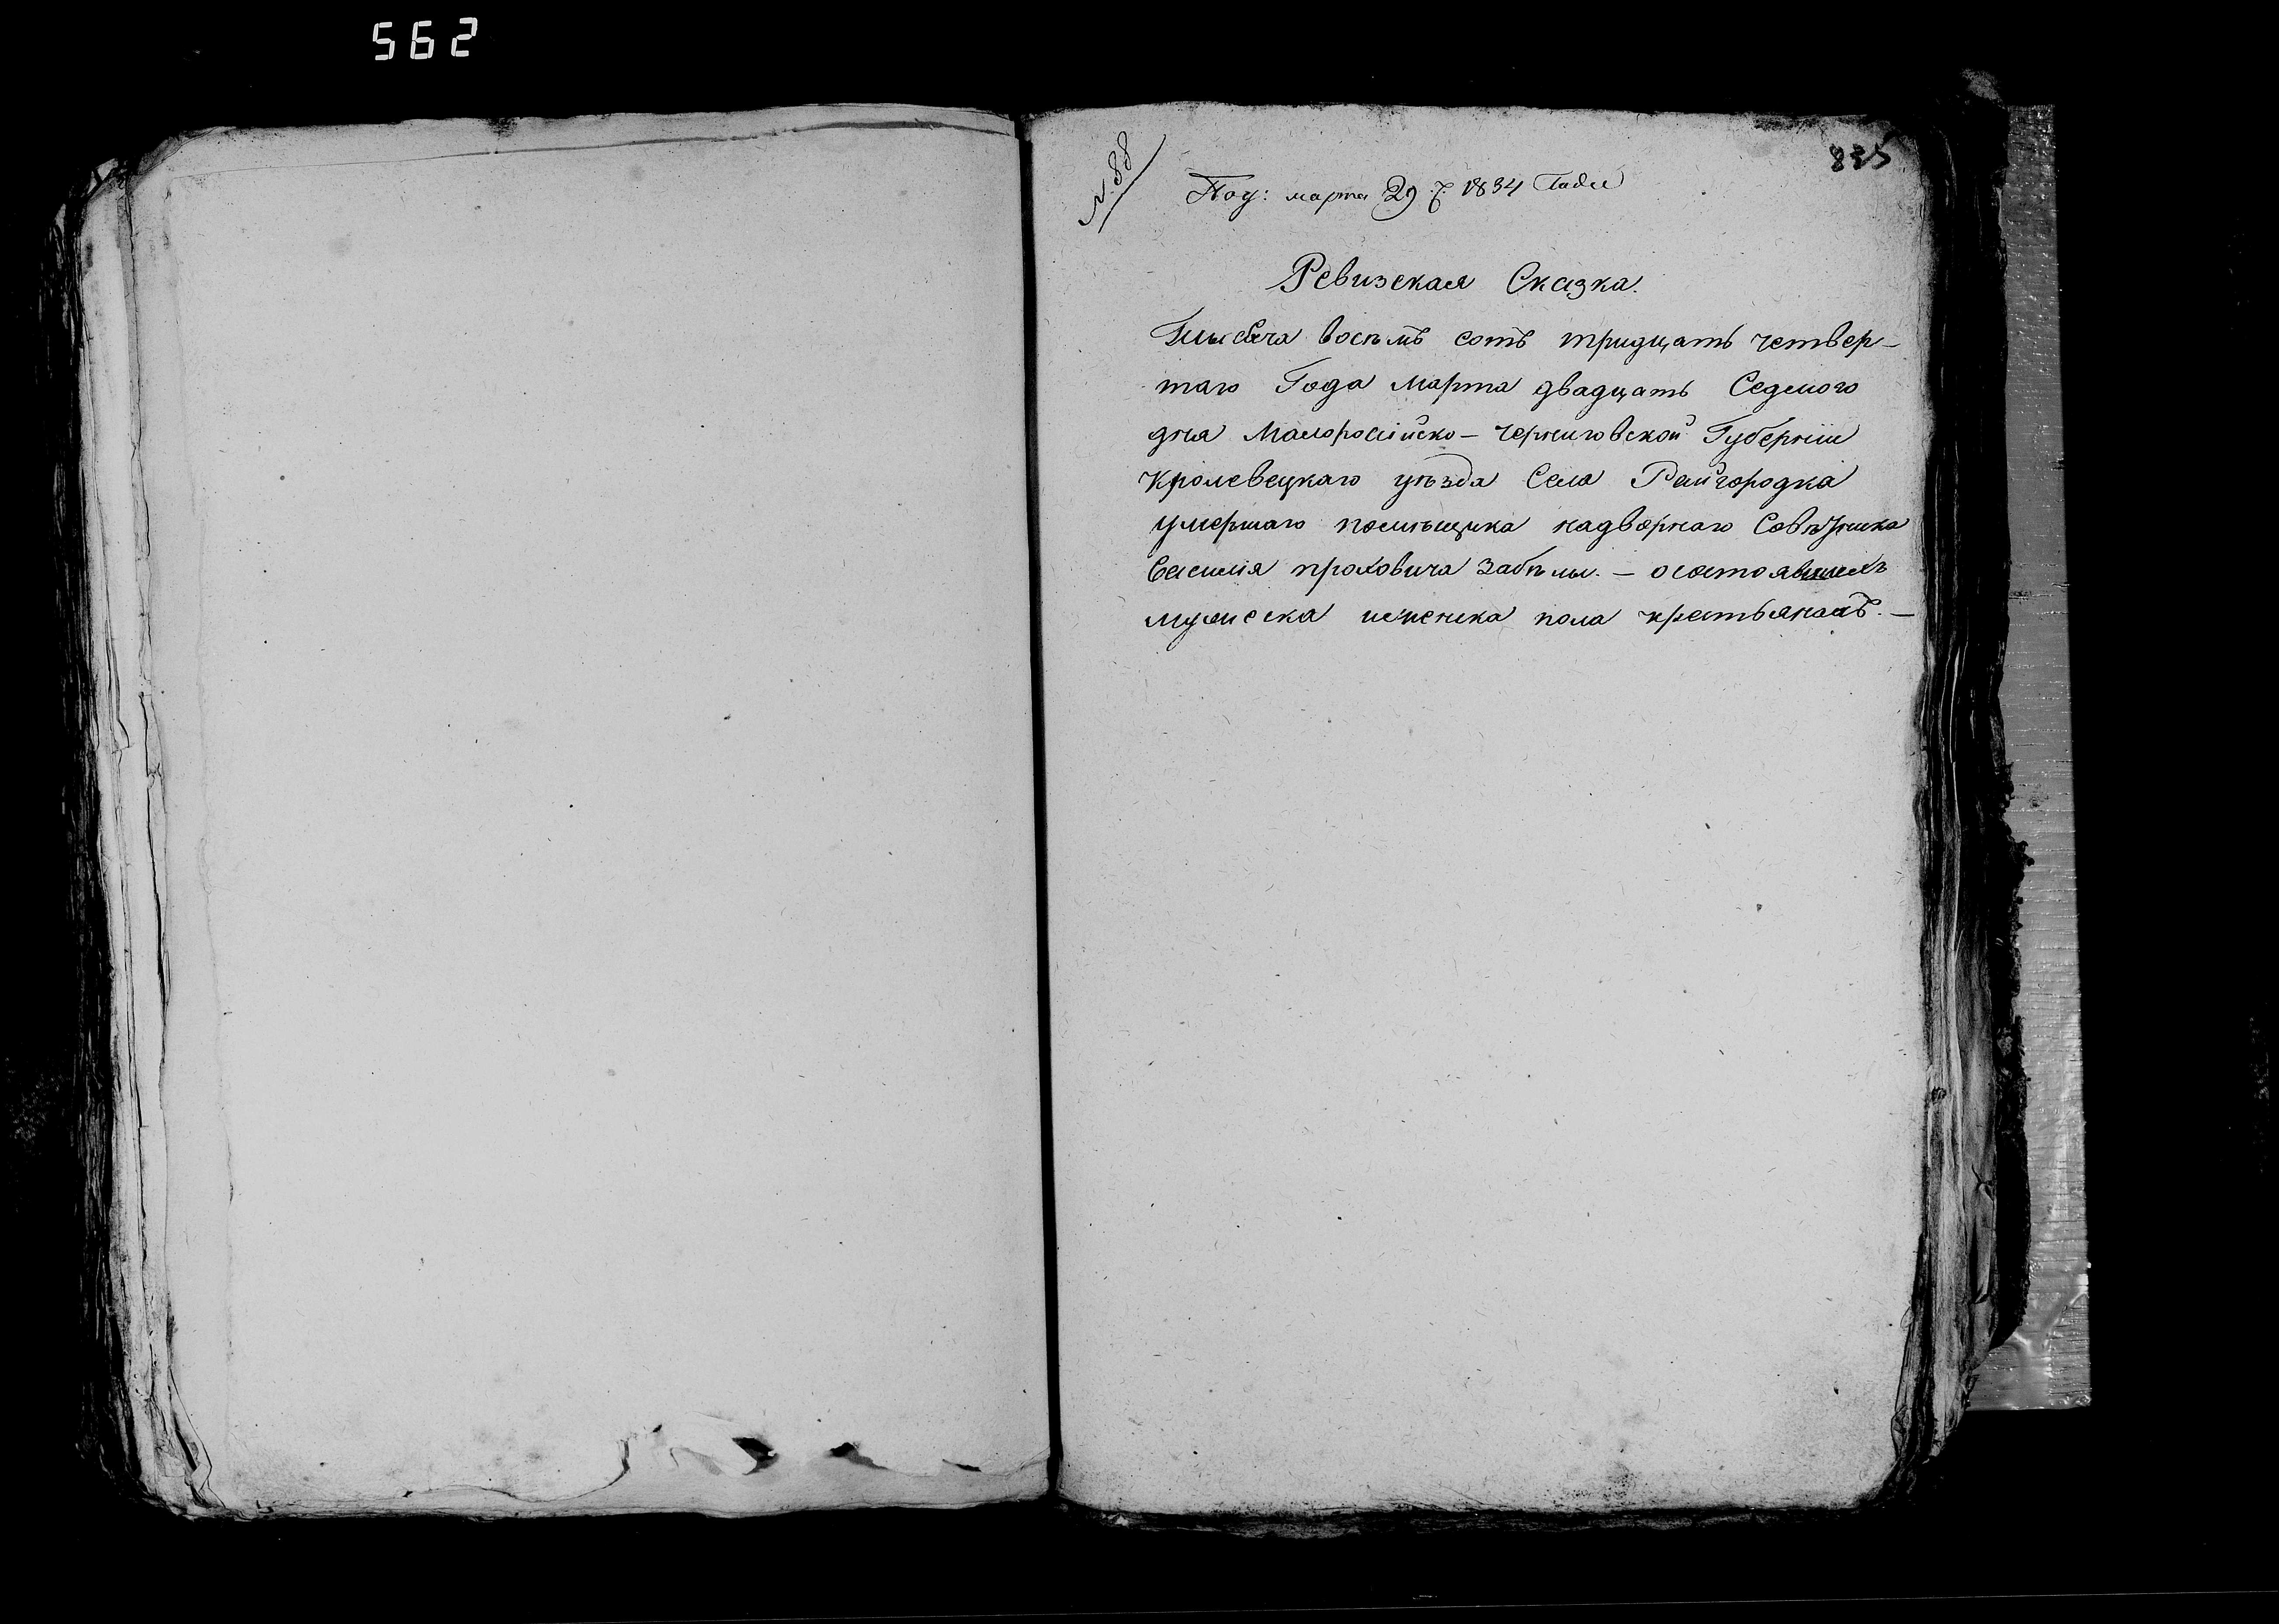 562
835
№ 88
Пол: марта 29 д. 1834 Года
Ревизская Сказка.
Тысяча восемъ сотъ тридцать четвер-
таго Года Марта двадцать Седмого
дня Малоросійско-Черниговской Губерніи
Кролевецкаго уѣзда Села Райгородка
умершаго помѣщика надворнаго Совѣтника
Василія проховича Забѣлы. - о состоявшихъ
мужеска иженска пола крестьянахъ. -